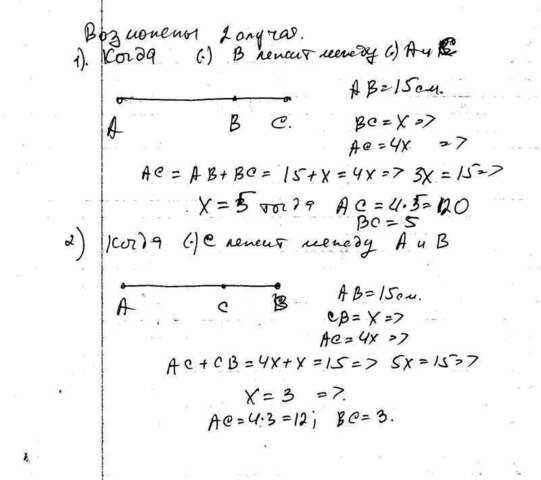 Возможены 2 случая.
1). Когда (.) B лежит между (.) A и C
A B C.
AB = 15 см.
BC = X =>
AC = 4X =>
AC = AB + BC = 15 + X = 4X => 3X = 15 =>
X = 5 тогда AC = 4·5 = 20
BC = 5
2) Когда (.) C лежит между A и B
A C B
AB = 15 см.
CB = X =>
AC = 4X =>
AC + CB = 4X + X = 15 => 5X = 15 =>
X = 3 =>.
AC = 4·3 = 12; BC = 3.